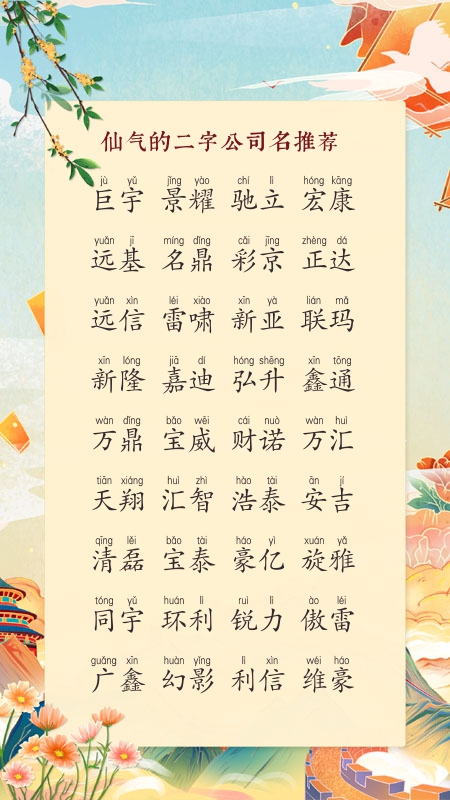 仙气的二字公司名推荐
jù yǔ jǐng yào chí lì hóng kāng
巨宇 景耀 驰立 宏康
yuǎn jī míng dǐng cǎi jīng zhèng dá
远基 名鼎 彩京 正达
yuǎn xìn léi xiào xīn yà lián mǎ
远信 雷啸 新亚 联玛
xīn lóng jiā dí hóng shēng xīn tōng
新隆 嘉迪 弘升 鑫通
wàn dǐng bǎo wēi cái nuò wàn huì
万鼎 宝威 财诺 万汇
tiān xiáng huì zhì hào tài ān jí
天翔 汇智 浩泰 安吉
qīng lěi bǎo tài háo yì xuán yǎ
清磊 宝泰 豪亿 旋雅
tóng yǔ huán lì ruì lì ào léi
同宇 环利 锐力 傲雷
guǎng xīn huàn yǐng lì xìn wéi háo
广鑫 幻影 利信 维豪